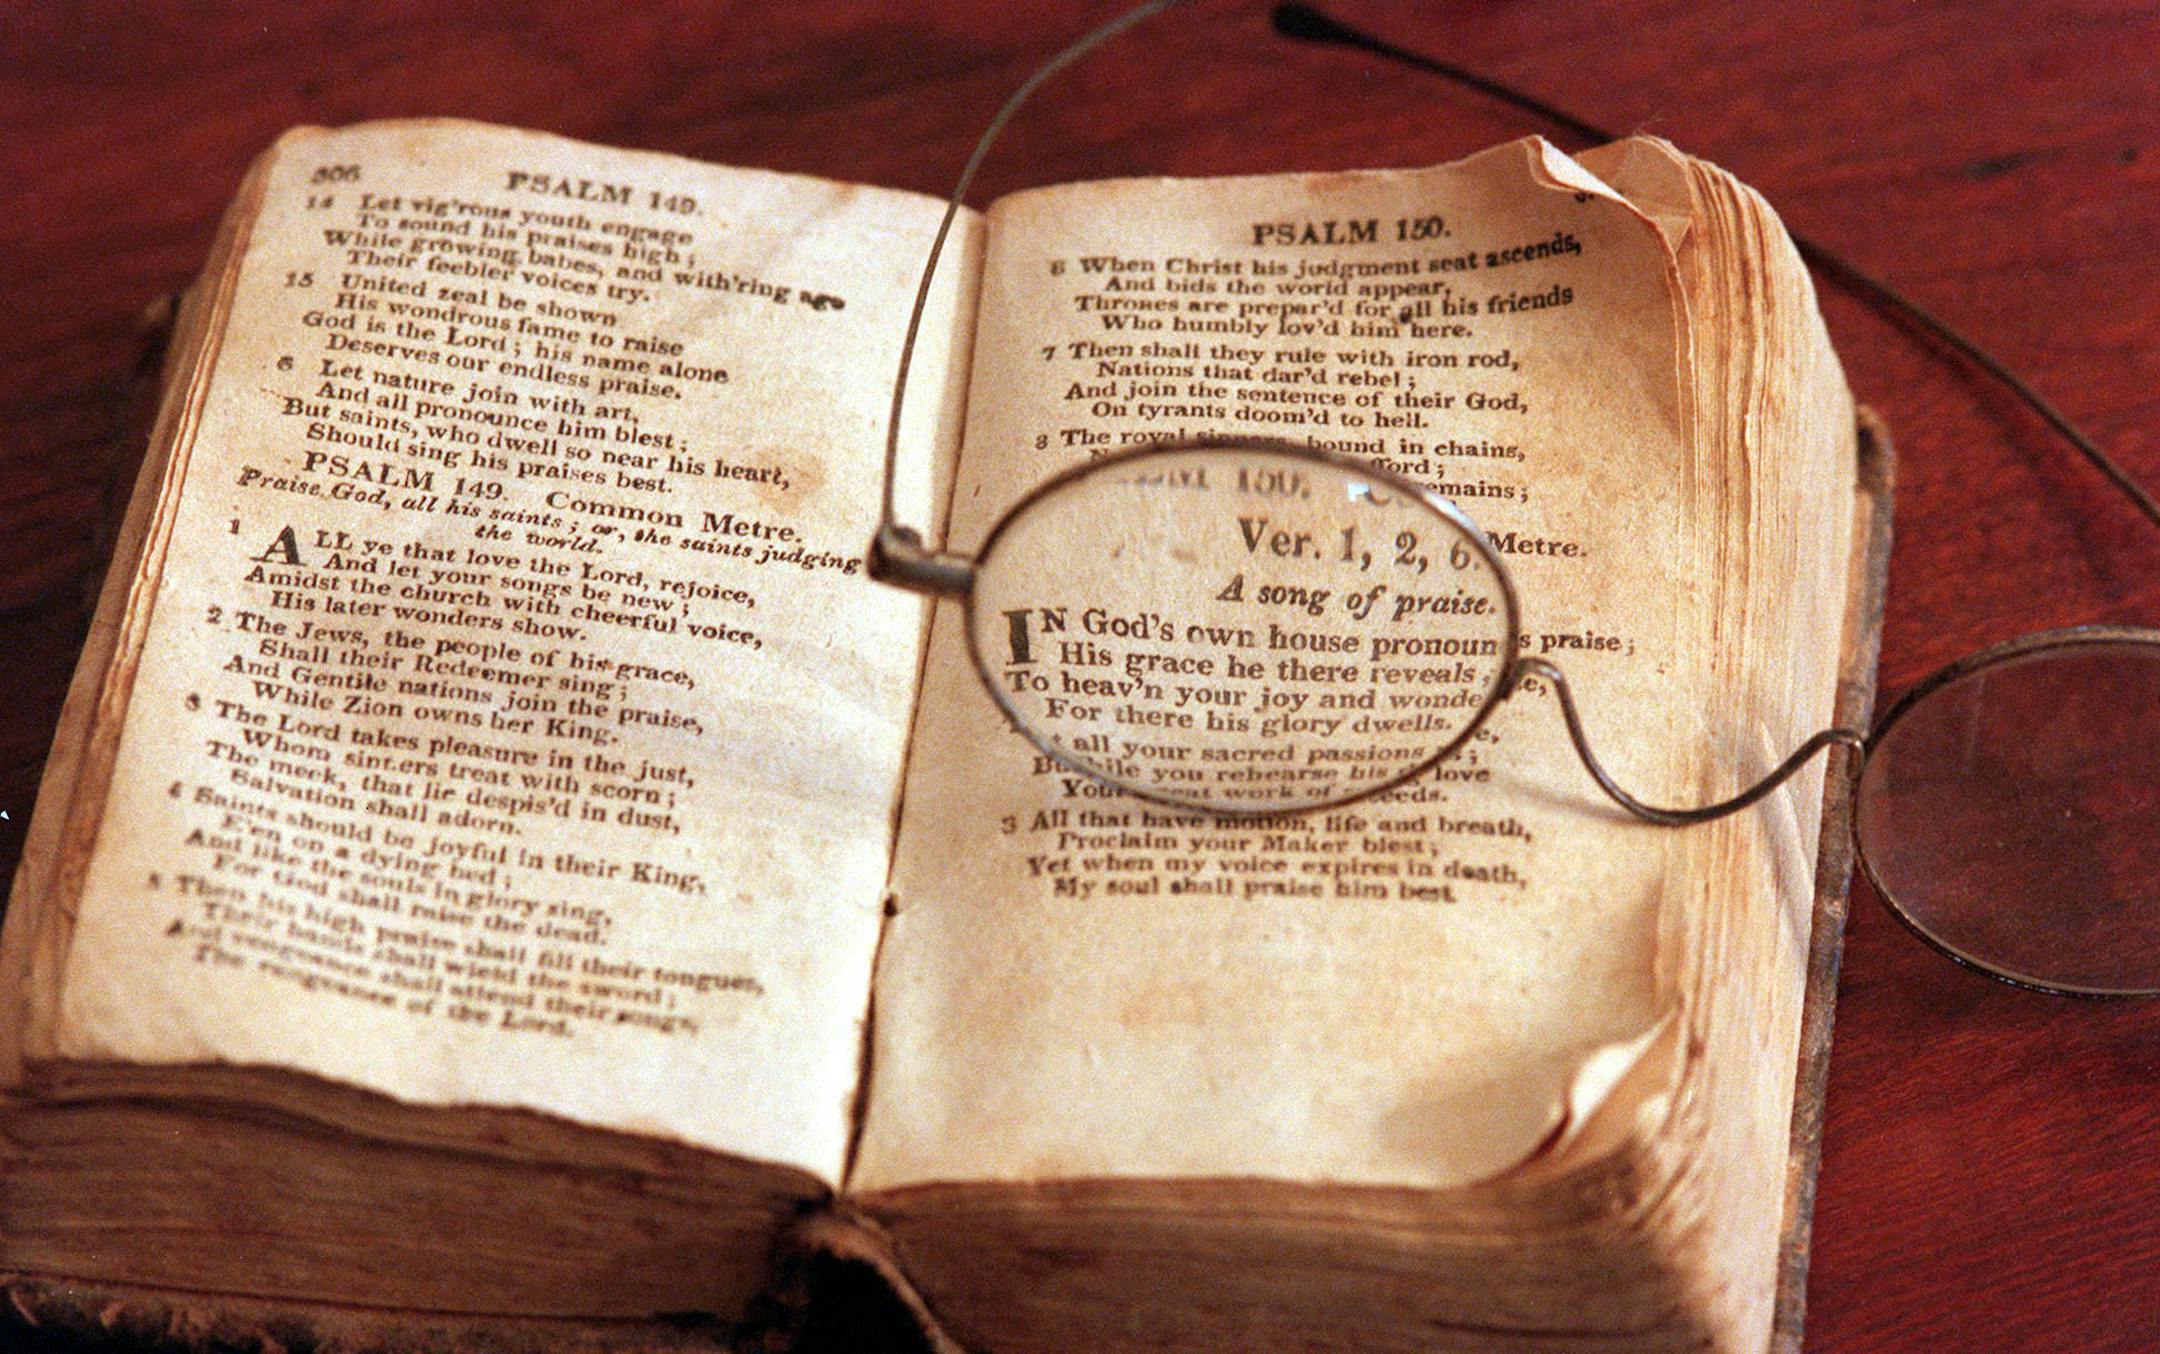 306 PSALM 149.
14 Let vig'rous youth engage
To sound his praises high ;
While growing babes, and with'ring age
Their feebler voices try.
15 United zeal be shown
His wondrous fame to raise
God is the Lord ; his name alone
Deserves our endless praise.
6 Let nature join with art,
And all pronounce him blest ;
But saints, who dwell so near his heart,
Should sing his praises best.
PSALM 149. Common Metre.
Praise God, all his saints ; or, the saints judging
the world.
1 ALL ye that love the Lord, rejoice,
And let your songs be new ;
Amidst the church with cheerful voice,
His later wonders show.
2 The Jews, the people of his grace,
Shall their Redeemer sing ;
And Gentile nations join the praise,
While Zion owns her King.
3 The Lord takes pleasure in the just,
Whom sinners treat with scorn ;
The meek, that lie despis'd in dust,
Salvation shall adorn.
4 Saints should be joyful in their King,
E'en on a dying bed ;
And like the souls in glory sing,
For God shall raise the dead.
5 Then his high praise shall fill their tongues,
Their hands shall wield the sword ;
And vengeance shall attend their songs,
The vengeance of the Lord.
PSALM 150.
6 When Christ his judgment seat ascends,
And bids the world appear,
Thrones are prepar'd for all his friends
Who humbly lov'd him here.
7 Then shall they rule with iron rod,
Nations that dar'd rebel ;
And join the sentence of their God,
On tyrants doom'd to hell.
8 The royal sinners, bound in chains,
150. Metre.
Ver. 1, 2, 6.
A song of praise.
IN God's own house pronoun s praise ;
His grace he there reveals ;
To heav'n your joy and wonde
For there his glory dwells.
all your sacred passions
while you rehearse his love
work of
3 All that have motion, life and breath,
Proclaim your Maker blest ;
Yet when my voice expires in death,
My soul shall praise him best.